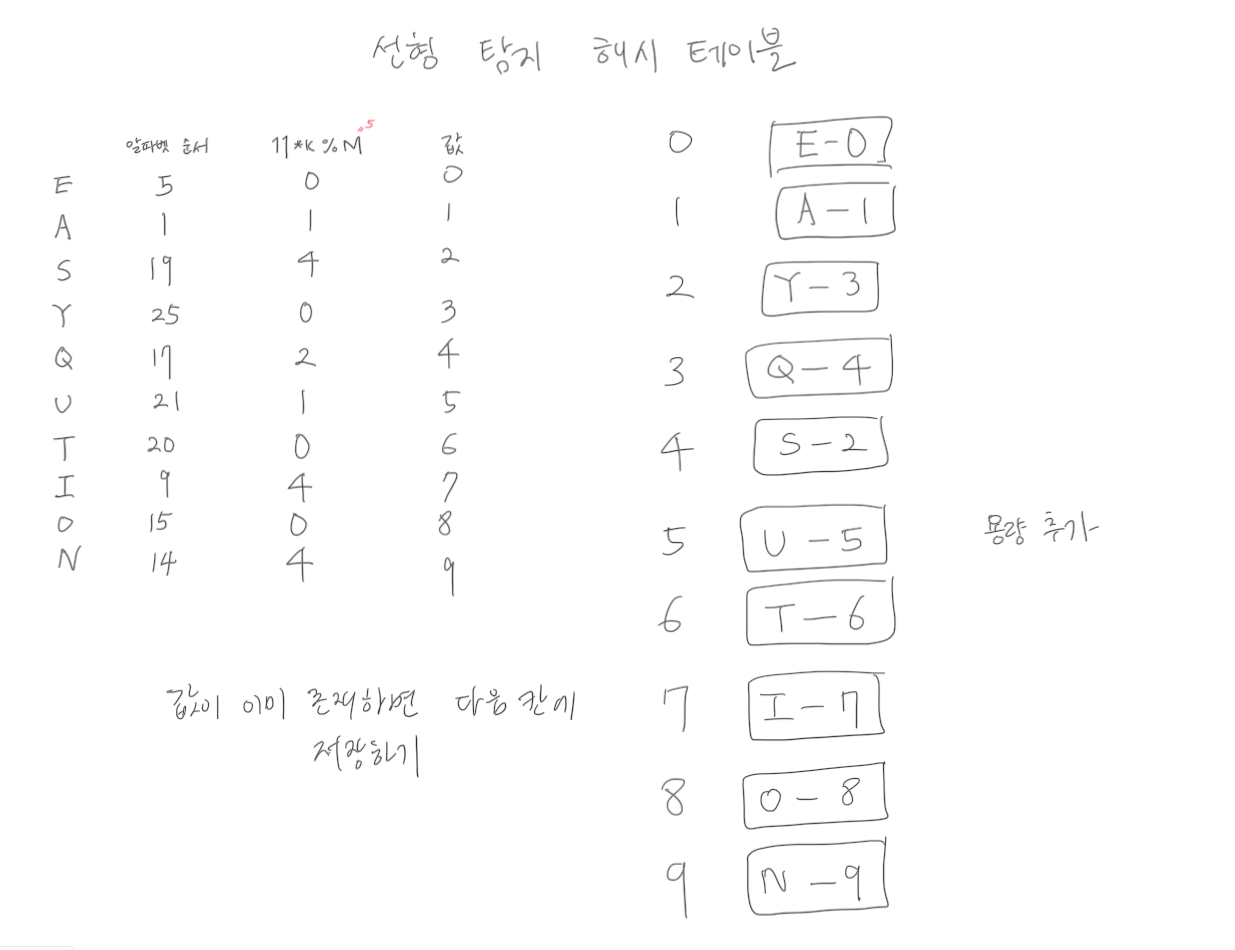 선형 탐지 해시 테이블
알파벳 순서 11*K % M 5 값
E 5 0 0
A 1 1 1
S 19 4 2
Y 25 0 3
Q 17 2 4
U 21 1 5
T 20 0 6
I 9 4 7
O 15 0 8
N 14 4 9
값이 이미 존재하면 다음 칸에
저장하기
0 E-0
1 A-1
2 Y-3
3 Q-4
4 S-2
5 U-5
6 T-6
7 I-7
8 O-8
9 N-9
용량 추가